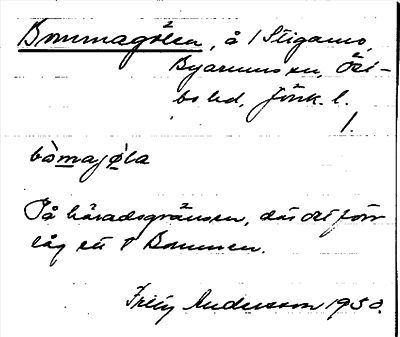 Bommagölen, å 1 Stigamo,
Byarums sn, Öst-
bo hd, Jönk. l.
1.
bòmajø̀la
På häradsgränsen, där det förr
låg ett t Bommen.
Fritz Andersson 1930.